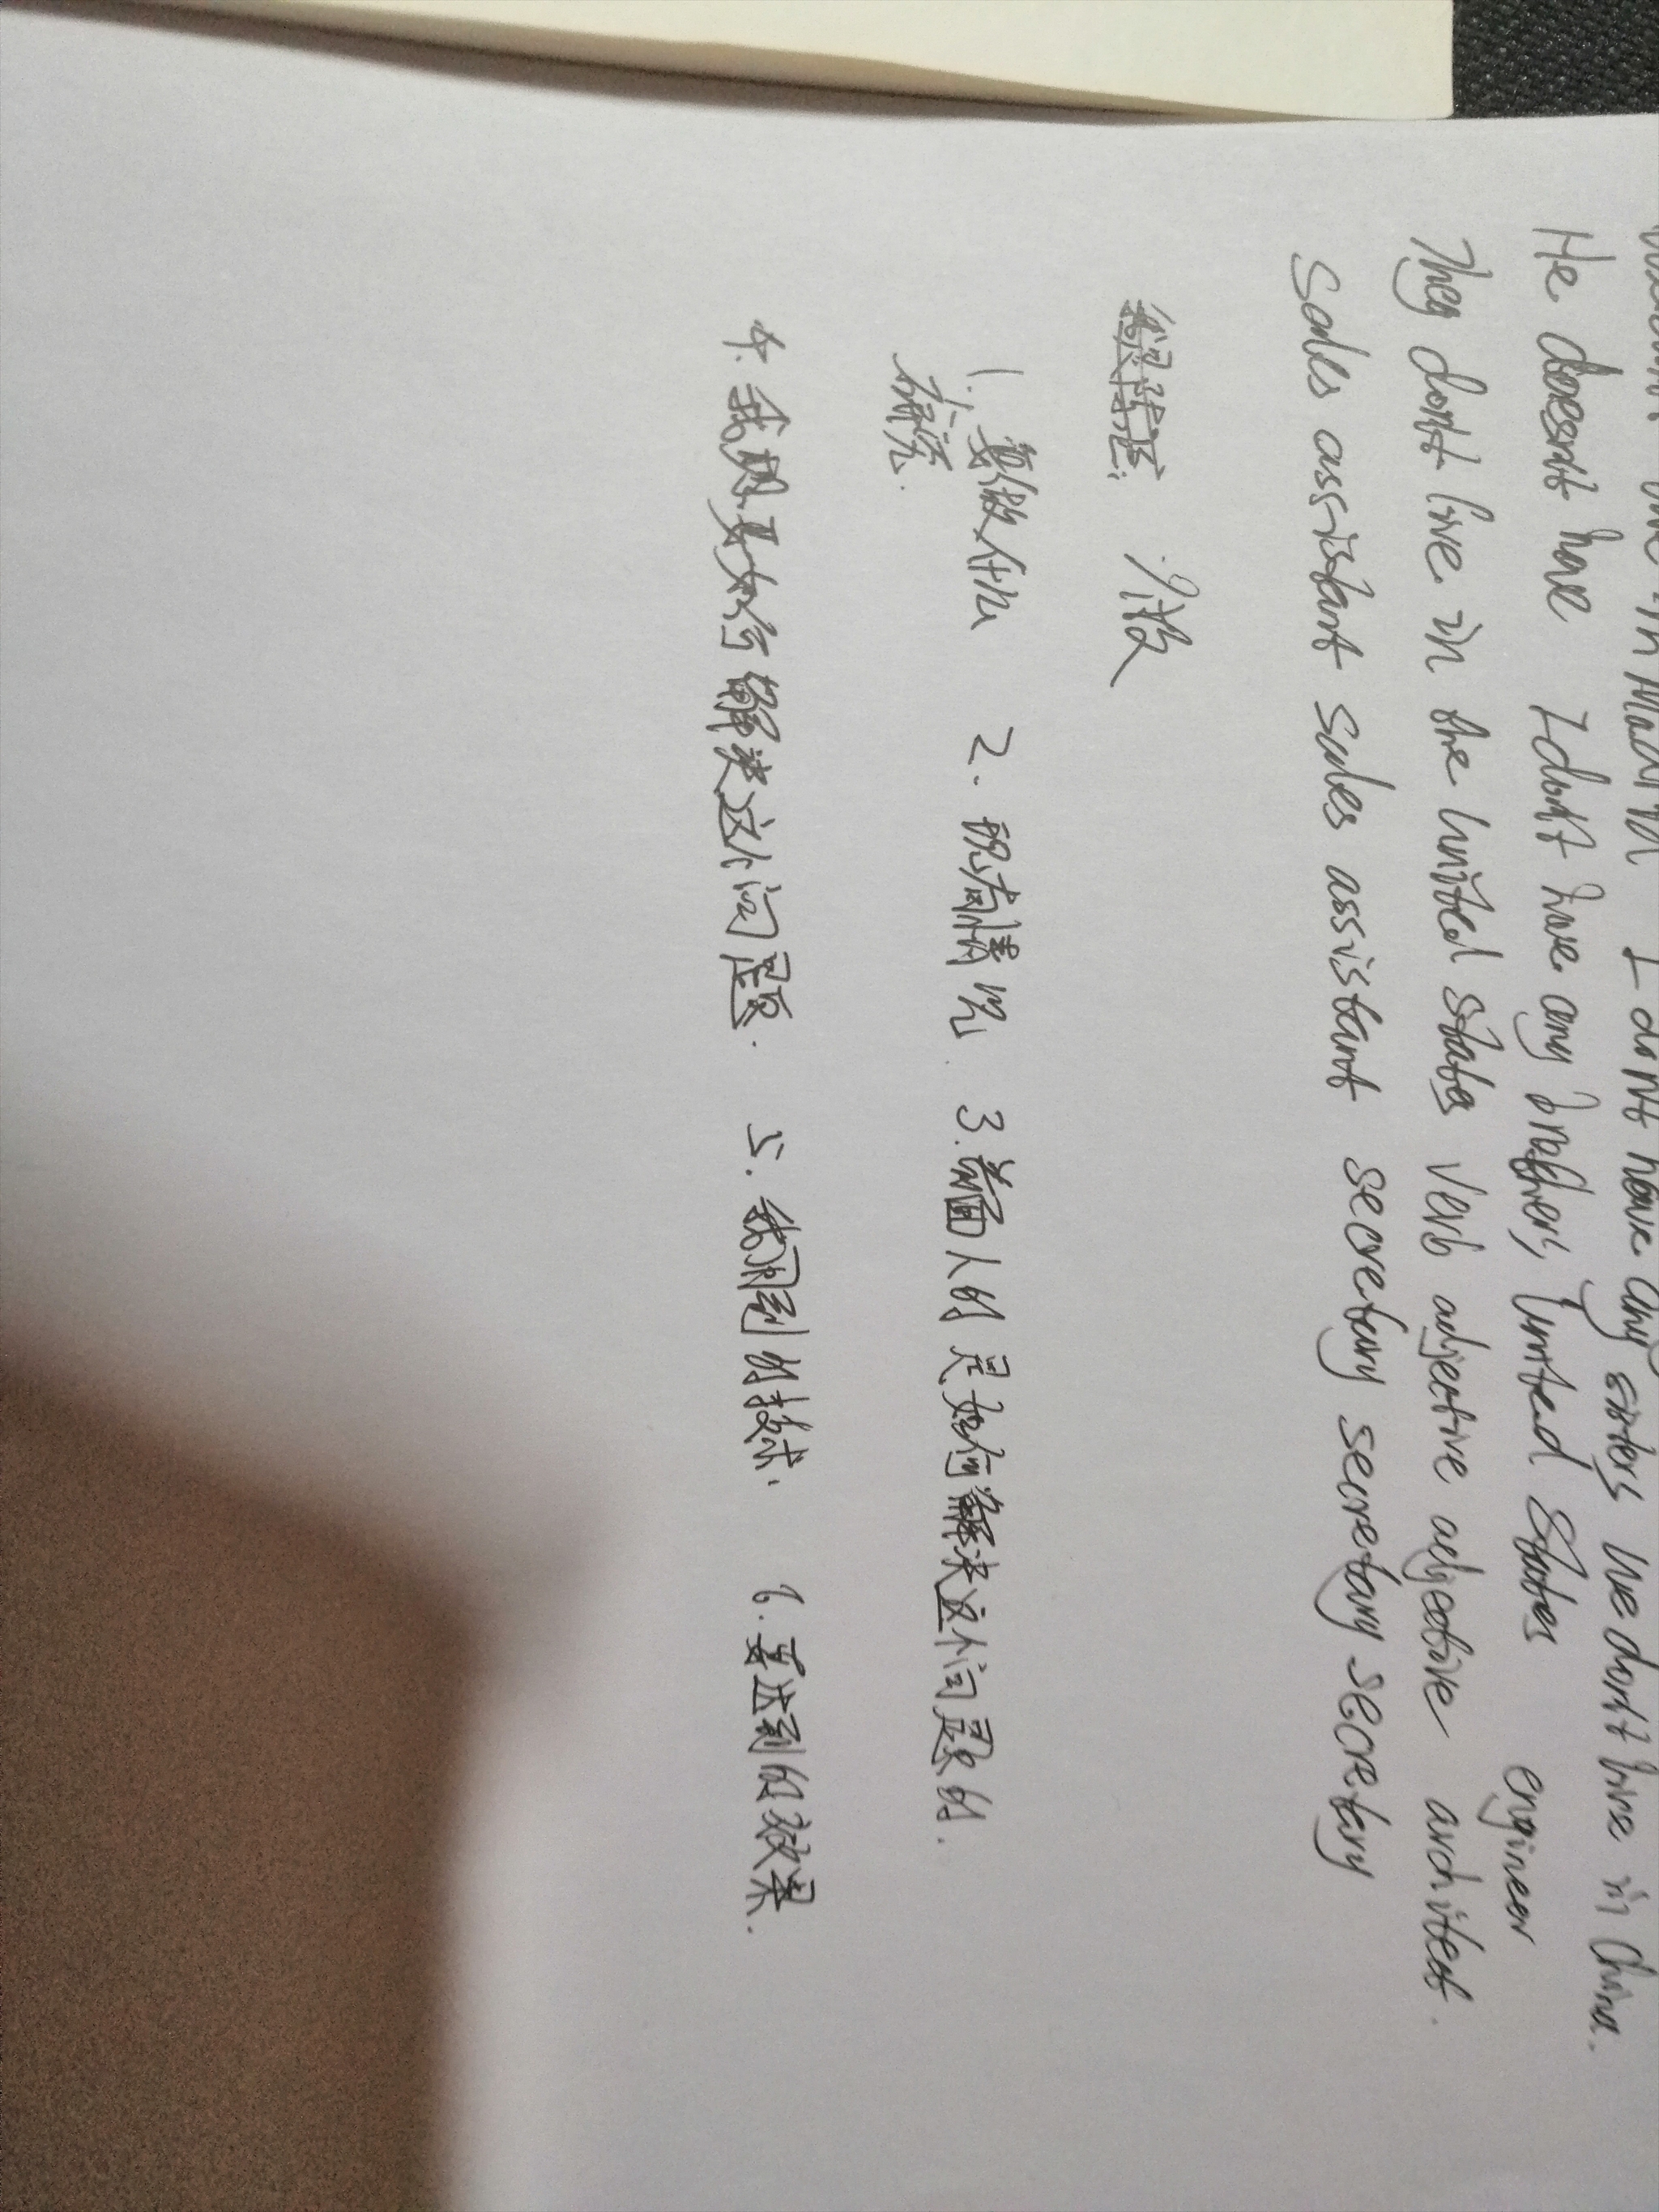 in Madrid. I don't have any sisters We don't live in China.
He doesn't have I don't have any brothers, United States engineer
They don't live in the United States Verb adjective adjective architect.
Sales assistant Sales assistant secretary secretary secretary
1. 要做什么 2. 现有情况. 3. 前面人的是如何解决这个问题的.
研究.
4. 我期要如何解决这个问题. 5. 我用到的技术. 6. 要达到的效果.